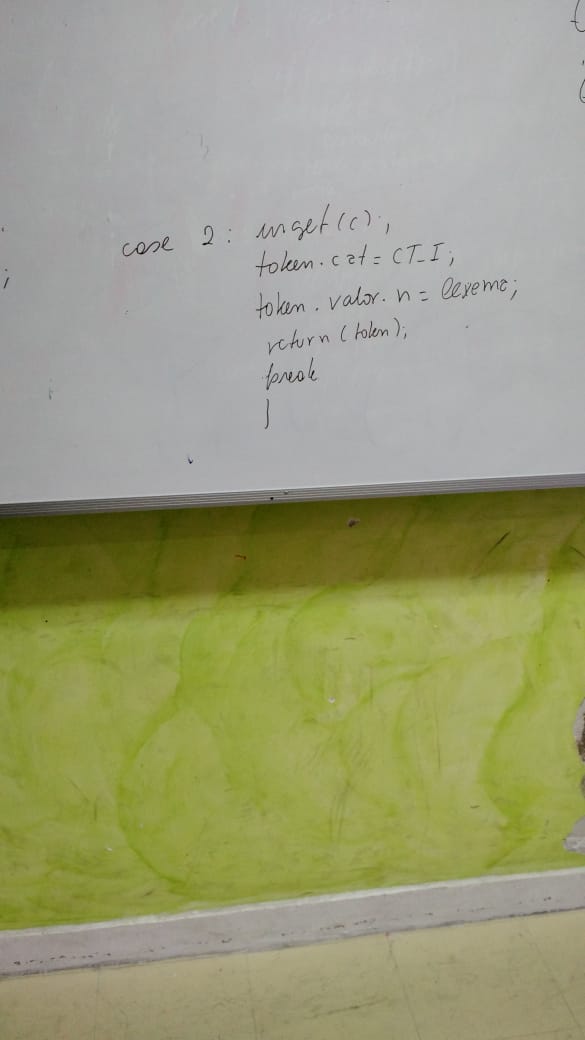 case 2: unget(c);
token.cat = CT_I;
token.valor.n = lexema;
return (token);
break
}